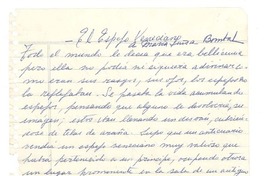 - El Espejo Veneciano
a María Luisa Bombal
Todo el mundo le decía que era bellísima
pero ella no podía ni siquiera adivinar có-
mo eran sus rasgos, sus ojos, los espejos no
la reflejaban. Se pasaba la vida acumulando
espejos, pensando que alguno le devolvería su
imagen; estos iban llenando un desván, cubrién-
dose de telas de araña. Supo que un anticuario
vendía un espejo veneciano muy valioso que
había pertenecido a un príncipe, ocupando ahora
un lugar prominente en la sala de un antiguo